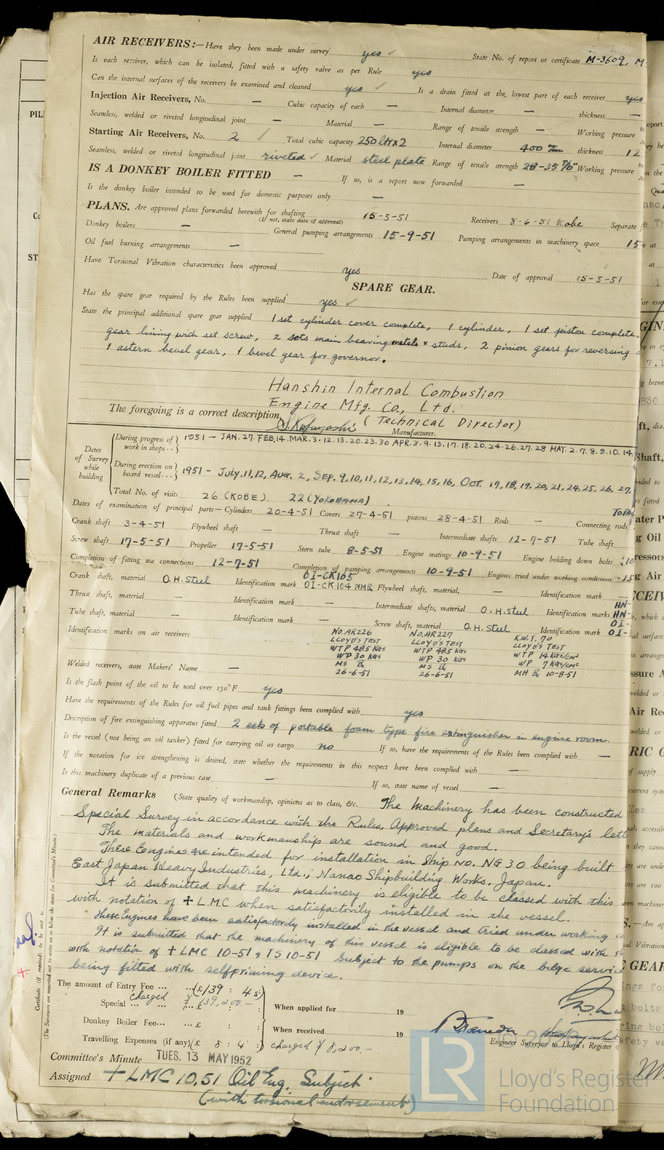 AIR RECEIVERS:—Have they been made under survey yes ✓ State No. of report or certificate M-3609 M
Is each receiver, which can be isolated, fitted with a safety valve as per Rule yes
Can the internal surfaces of the receivers be examined and cleaned yes ✓ Is a drain fitted at the lowest part of each receiver yes
Injection Air Receivers, No. — Cubic capacity of each — Internal diameter — thickness —
Seamless, welded or riveted longitudinal joint — Material — Range of tensile strength — Working pressure
Starting Air Receivers, No. 2 ✓ Total cubic capacity 250 lit x 2 Internal diameter 400 mm thickness 12
Seamless, welded or riveted longitudinal joint riveted ✓ Material steel plate Range of tensile strength 28-35 Working pressure
IS A DONKEY BOILER FITTED — If so, is a report now forwarded —
Is the donkey boiler intended to be used for domestic purposes only —
PLANS. Are approved plans forwarded herewith for shafting 15-5-51 Receivers 8-6-51 Kobe Separate
(If not, state date of approval)
Donkey boilers — General pumping arrangements 15-9-51 Pumping arrangements in machinery space 15
Oil fuel burning arrangements —
Have Torsional Vibration characteristics been approved yes Date of approval 15-5-51
SPARE GEAR.
Has the spare gear required by the Rules been supplied yes ✓
State the principal additional spare gear supplied 1 set cylinder cover complete, 1 cylinder, 1 set piston complete
gear lining with set screw, 2 sets main bearing metals & studs, 2 pinion gears for reversing
1 astern bevel gear, 1 bevel gear for governor.
Hanshin Internal Combustion
Engine Mfg. Co., Ltd.
The foregoing is a correct description, (Technical Director)
Manufacturer.
Dates of Survey while building
During progress of work in shops 1951 - JAN. 27. FEB. 14. MAR. 3. 12. 13. 20. 23. 30 APR. 3. 9. 13. 17. 18. 20. 24. 26. 27. 28 MAY. 2. 7. 8. 9. 10. 14.
During erection on board vessel 1951 - JULY, 11, 12, AUG. 2, SEP. 9, 10, 11, 12, 13, 14, 15, 16, OCT. 17, 18, 19, 20, 21, 24, 25, 26, 27,
Total No. of visits 26 (KOBE). 22 (YOKOHAMA).
Dates of examination of principal parts—Cylinders 20-4-51 Covers 27-4-51 pistons 28-4-51 Rods — Connecting rods
Crank shaft 3-4-51 Flywheel shaft — Thrust shaft — Intermediate shafts 12-7-51 Tube shaft
Screw shaft 17-5-51 Propeller 17-5-51 Stern tube 8-5-51 Engine seatings 10-9-51 Engine holding down bolts 10
Completion of fitting sea connections 12-7-51 Completion of pumping arrangements 10-9-51 Engines tried under working conditions 15
Crank shaft, material O.H. Steel Identification mark OI-CK105 OI-CK104 Flywheel shaft, material, — Identification mark —
Thrust shaft, material — Identification mark — Intermediate shafts, material O.H. Steel Identification marks HN-
Tube shaft, material — Identification mark — Screw shaft, material O.H. Steel Identification mark OI-
Identification marks on air receivers
NO. AR226 NO. AR227 K.W.T. 70
LLOYD'S TEST LLOYD'S TEST LLOYD'S TEST
WTP 48.5 KGS WTP 48.5 KGS WTP 14 KGS/CM²
WP 30 KGS WP 30 KGS WP 7 KGS/CM²
26-6-51 26-6-51 10-8-51
Welded receivers, state Makers' Name —
Is the flash point of the oil to be used over 150°F yes
Have the requirements of the Rules for oil fuel pipes and tank fittings been complied with yes
Description of fire extinguishing apparatus fitted 2 sets of portable foam type fire extinguisher in engine room.
Is the vessel (not being an oil tanker) fitted for carrying oil as cargo no If so, have the requirements of the Rules been complied with —
If the notation for ice strengthening is desired, state whether the requirements in this respect have been complied with —
Is this machinery duplicate of a previous case — If so, state name of vessel —
General Remarks (State quality of workmanship, opinions as to class, &c. The Machinery has been constructed
Special Survey in accordance with the Rules, Approved plans and Secretary's lett
The materials and workmanship are sound and good.
These Engines are intended for installation in Ship NO. NG30 being built
East Japan Heavy Industries, Ltd., Nanao Shipbuilding Works, Japan.
It is submitted that this machinery is eligible to be classed with this
with notation of + LMC when satisfactorily installed in the vessel.
These Engines have been satisfactorily installed in the vessel and tried under working
It is submitted that the machinery of this vessel is eligible to be classed with
with notation of + LMC 10-51, TS 10-51 Subject to the pumps on the bilge service
being fitted with selfpriming device.
The amount of Entry Fee ... (£139 : 4 s)
charged
Special ... ¥ 139,200.—
Donkey Boiler Fee... £
Travelling Expenses (if any) (£ 8 : 4 ) charged ¥ 8,200.—
When applied for 19
When received 19
Engineer Surveyor to Lloyd's Register
Committee's Minute TUES. 13 MAY 1952
Assigned + LMC 10,51 Oil Eng. Subject
(with torsional endorsement)
LR
Lloyd's Register
Foundation